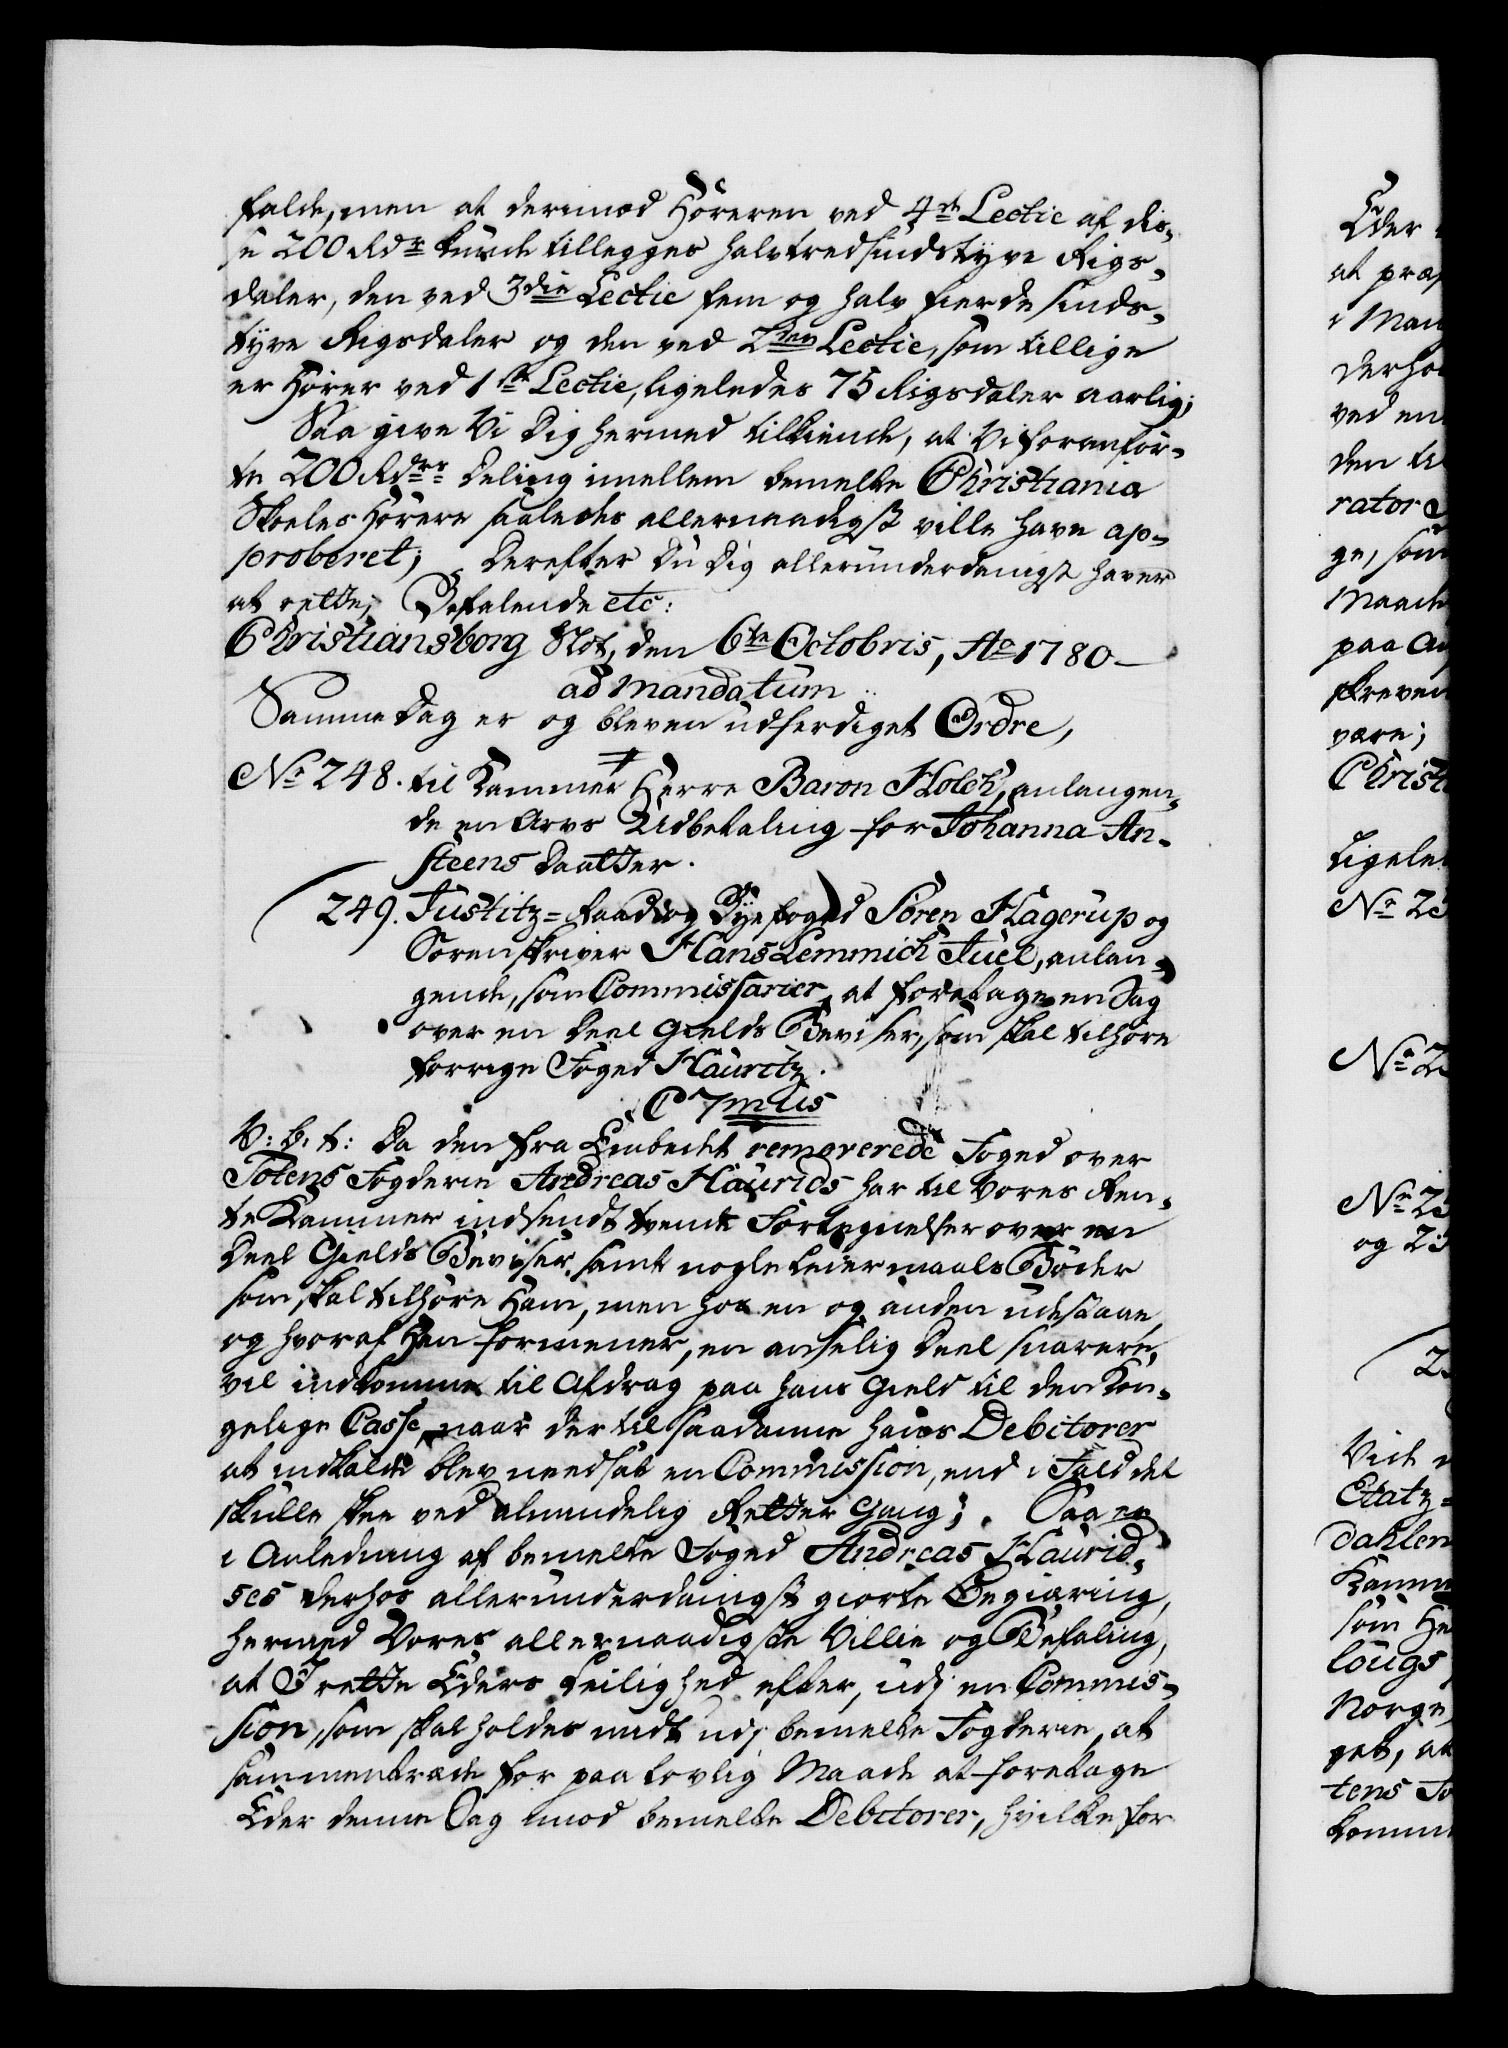 falde, men at derimod Hören ved 4de Lectie af dis-
se 200 Rdr kunde tillegges halvtredsindstyve Rigs-
daler, den ved 3die Lectie fem og halv fierde sinds-
tyve Rigsdaler og den ved 2den Lectie, som tillige
er Hörer ved 1ste Lectie, ligeledes 75 Rigsdaler aarlig;
Saa give Vi Dig hermed tilkiende, at Vi foranför-
te 200 Rdrs Deling imellem bemelte Christiania
Skoeles Hörere saaledes allernaadigst ville have ap-
proberet; Derefter Du Dig allerunderdanigst haver
at rette; Befalende etc:
Christiansborg Slot, den 6te Octobris, Ao 1780 —
ad Mandatum
Samme Dag er og bleven udferdiget Ordre,
No 248. til Kammer Herre Baron Holck, anlangen-
de en Arvs Udbetaling for Johanna An-
steens Daatter.
249. Justitz-Raad og Byefoged Sören Hagerup og
Sorenskriver Hans Lemmich Juel, anlan-
gende, som Commissarier, at foretage en Sag
over en Deel Gields Beviser, som skal tilhöre
forrige Foged Hauritz.
C 7mus
V: G: t: Da den fra Embedet removerede Foged over
Totens Fogderie Andreas Haurids har til Vores Ren-
te Kammer indsendt tvende Fortegnelser over en
Deel Gields Beviser, samt nogle Leiermaals Böder
som skal tilhöre Ham, men hos en og anden udestaae,
og hvoraf Han formener, en anselig Deel snarere,
vil indkomme til Afdrag paa hans Gield til den Kon-
gelige Casse, naar der til saadanne hans Debitorer
at indkalde blev nedsat en Commission, end i Fald det
skulle skee ved almindelig Retter Gang; Saa er
i Anledning af bemelte Foged Andreas Haurid-
ses derhos allerunderdanigst giorte Begiæring,
hermed Vores allernaadigste Villie og Befaling,
at I rette Eders Leilighed efter, udi en Commis-
sion, som skal holdes midt udi bemelte Fogderie, at
sammentræde for paa lovlig Maade at foretage
Eder denne Sag imod bemelte Debitorer, hvilke for
Eder
at præ
i Man
derho
ved en
den ti
rator
ge, som
Maade
paa A
skreven
være;
Christ
Ligele
No 2
No 2
No 2
og 2
2
Vide
Etatz-
Dahlen
Kamm
som He
lougs
Norge,
get, at
tens Fo
komm